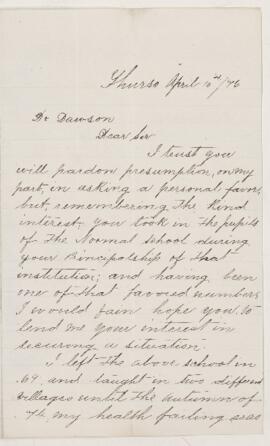 Thurso April 10th/76
Dr Dawson
Dear Sir
I trust you
will pardon presumption, on my
part, in asking a personal favor,
but, remembering the kind
interest, you took in the pupils
of the Normal school during
your Principalship of that
institution; and having been
one of that favored number,
I would fain hope you, to
lend me your interest in
securing a situation.
I left the above school in
.69, and taught in two different
villages until the Autumn of
.74, my health failing